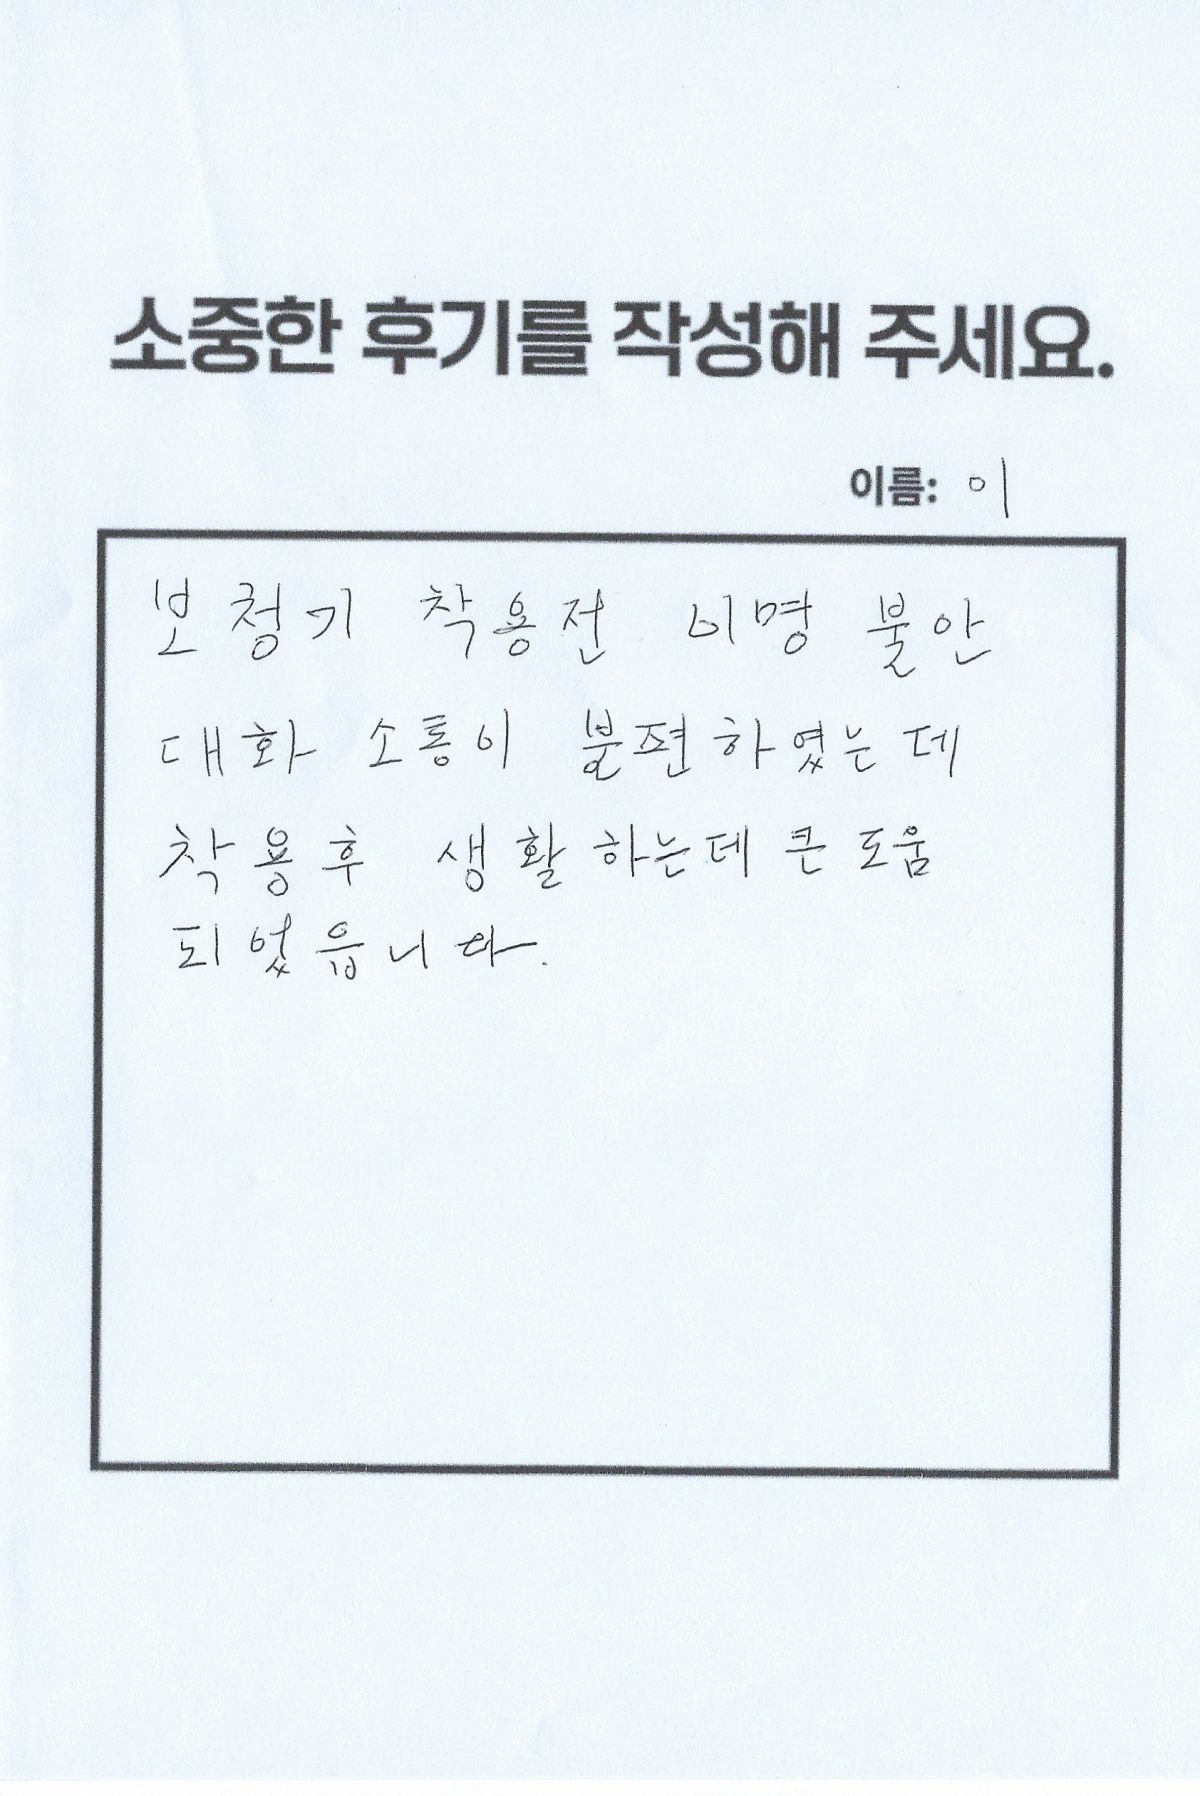 소중한 후기를 작성해 주세요.
이름: 이
보청기 착용전 이명 불안
대화 소통이 불편하였는데
착용후 생활하는데 큰 도움
되었읍니다.